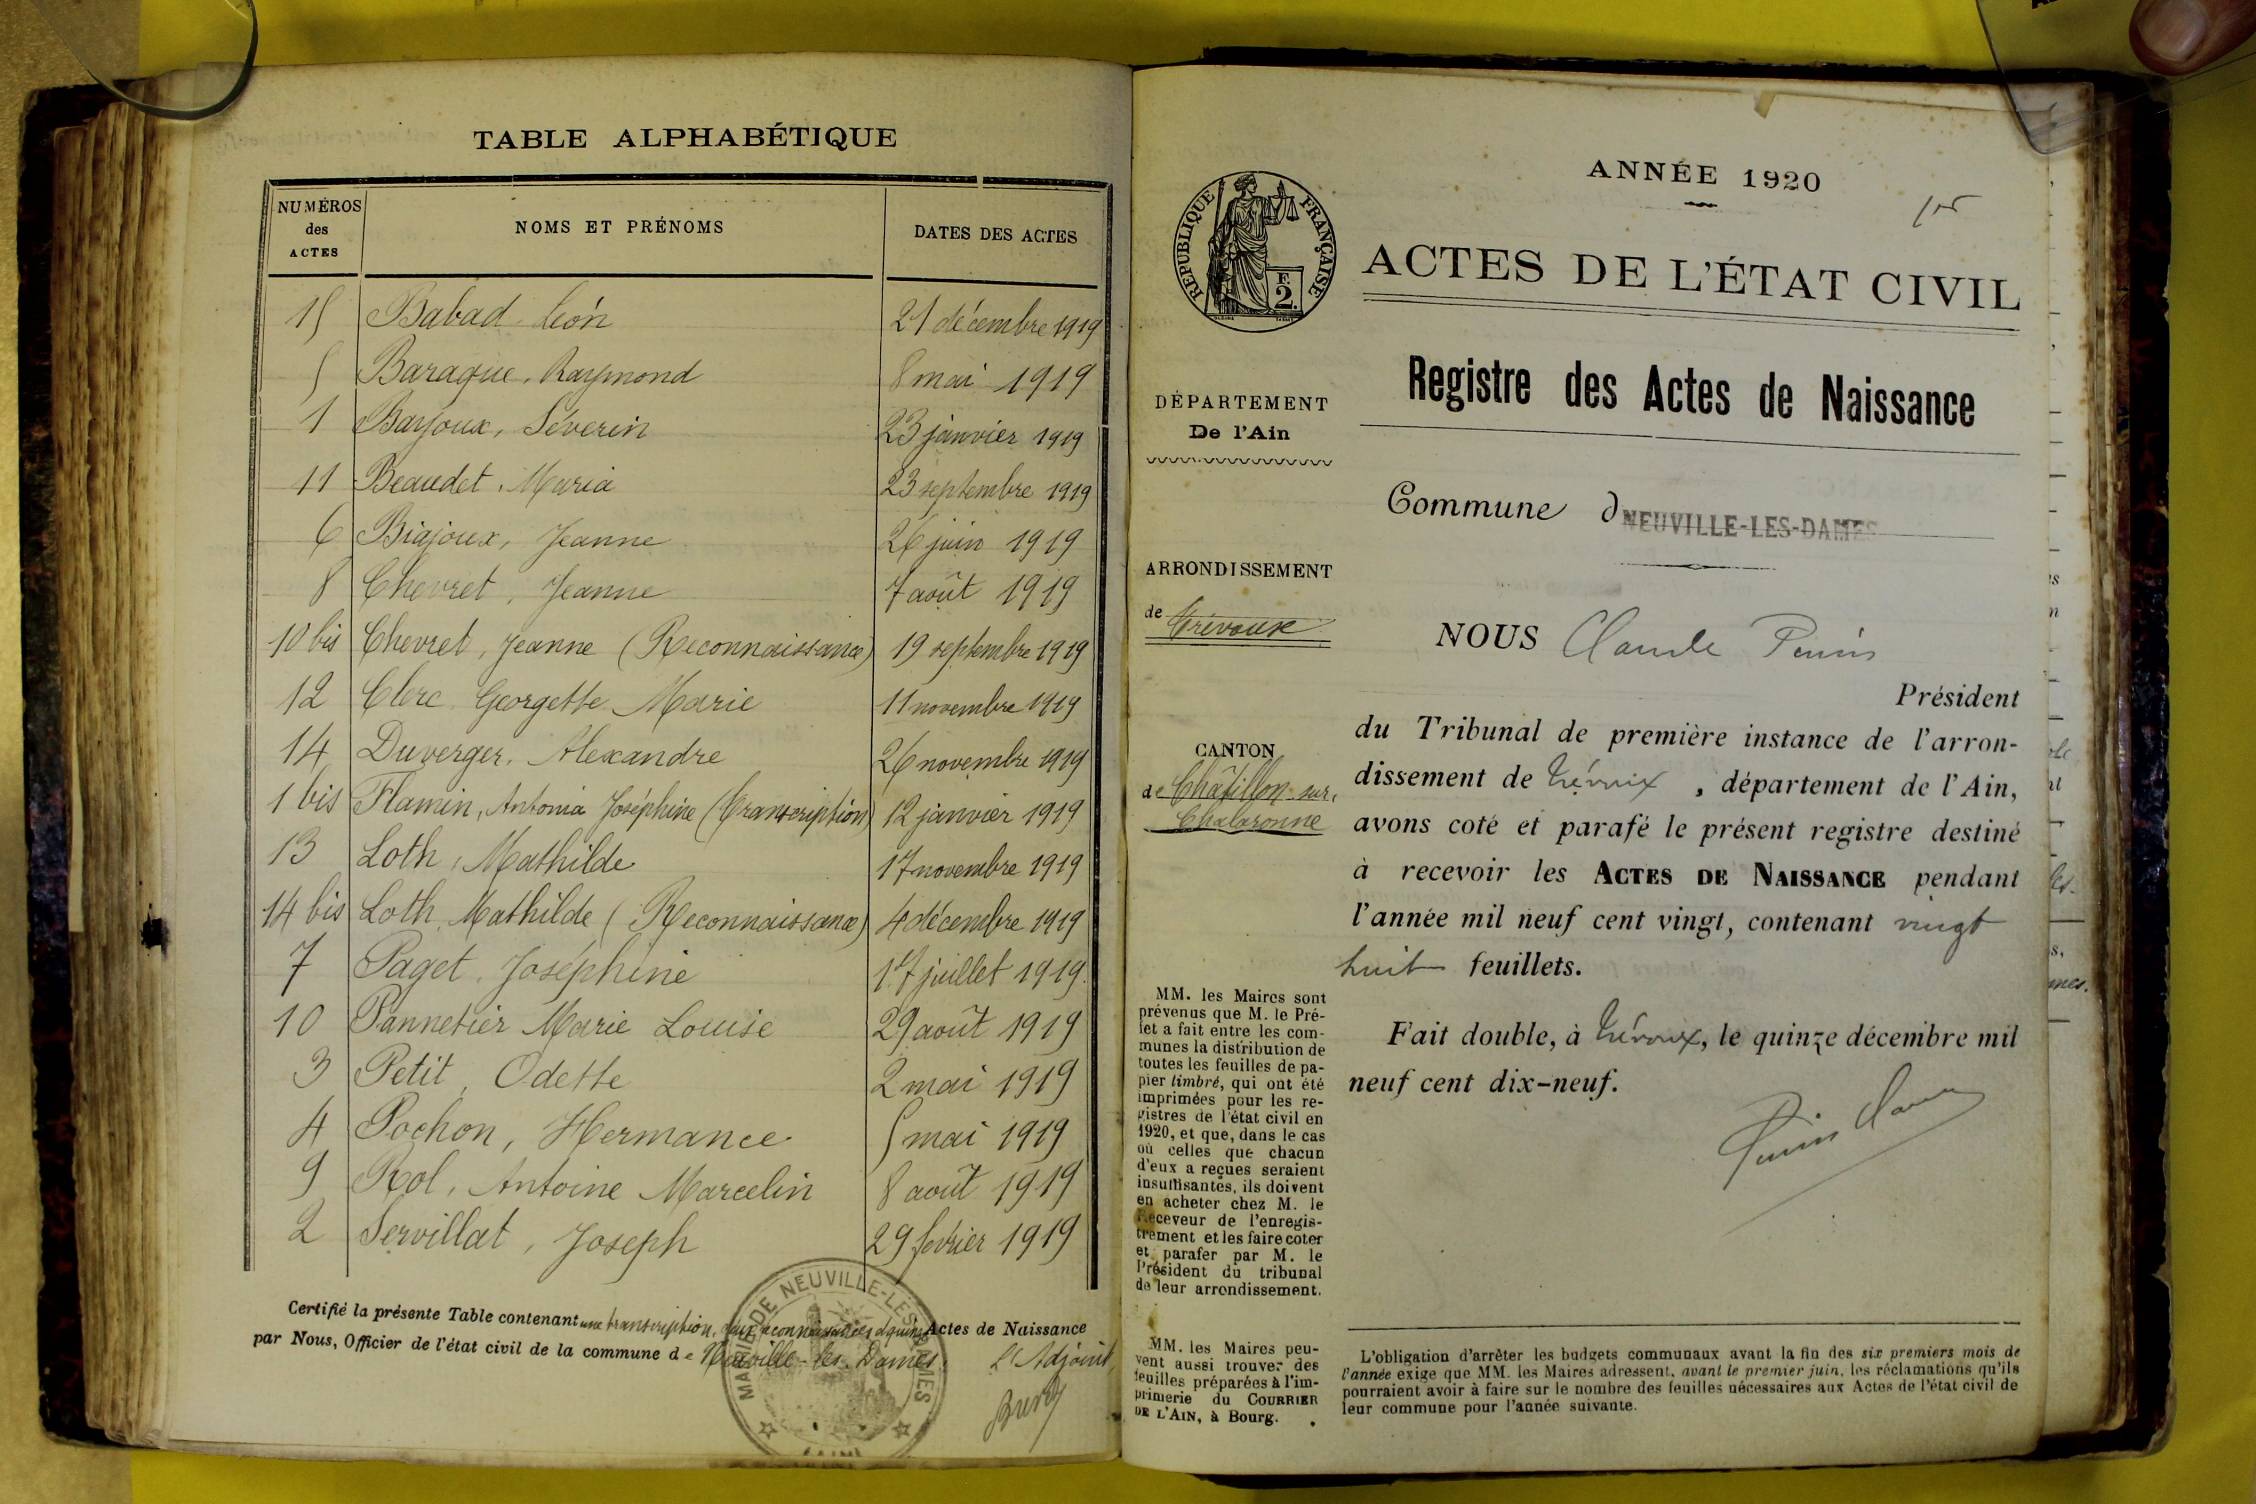 TABLE ALPHABÉTIQUE
NUMÉROS des ACTES NOMS ET PRÉNOMS DATES DES ACTES
15 Babad Léon 21 décembre 1919
5 Baraque, Raymond 8 mai 1919
1 Bayoux, Séverin 23 janvier 1919
11 Beaudet, Maria 23 septembre 1919
6 Biajoux, Jeanne 26 juin 1919
8 Chevret, Jeanne 7 août 1919
10 bis Chevret, Jeanne (Reconnaissance) 19 septembre 1919
12 Clerc Georgette Marie 11 novembre 1919
14 Duverger, Alexandre 26 novembre 1919
1 bis Flamin, Antonia Joséphine (Transcription) 12 janvier 1919
13 Loth, Mathilde 17 novembre 1919
14 bis Loth, Mathilde (Reconnaissance) 4 décembre 1919
7 Paget, Joséphine 17 juillet 1919
10 Pannetier Marie Louise 29 août 1919
3 Petit, Odette 2 mai 1919
4 Pochon, Hermance 5 mai 1919
9 Rol, Antoine Marcelin 8 août 1919
2 Servillat, Joseph 29 février 1919
Certifié la présente Table contenant une transcription, deux reconnaissances et quinze Actes de Naissance
par Nous, Officier de l'état civil de la commune de Neuville-les-Dames. L'Adjoint
MAIRIE DE NEUVILLE-LES-DAMES
(AIN)
ANNÉE 1920
RÉPUBLIQUE FRANÇAISE
2
ACTES DE L'ÉTAT CIVIL
Registre des Actes de Naissance
DÉPARTEMENT
De l'Ain
Commune d NEUVILLE-LES-DAMES
ARRONDISSEMENT
de Trévoux
NOUS Claude Perrin
Président
du Tribunal de première instance de l'arron-
dissement de Trévoux, département de l'Ain,
avons coté et parafé le présent registre destiné
à recevoir les ACTES DE NAISSANCE pendant
l'année mil neuf cent vingt, contenant vingt
huit feuillets.
Fait double, à Trévoux, le quinze décembre mil
neuf cent dix-neuf.
CANTON
de Châtillon-sur-
Chalaronne
MM. les Maires sont
prévenus que M. le Pré-
fet a fait entre les com-
munes la distribution de
toutes les feuilles de pa-
pier timbré, qui ont été
imprimées pour les re-
gistres de l'état civil en
1920, et que, dans le cas
où celles que chacun
d'eux a reçues seraient
insuffisantes, ils doivent
en acheter chez M. le
Receveur de l'enregis-
trement et les faire coter
et parafer par M. le
Président du tribunal
de leur arrondissement.
MM. les Maires peu-
vent aussi trouver des
feuilles préparées à l'im-
primerie du COURRIER
DE L'AIN, à Bourg.
L'obligation d'arrêter les budgets communaux avant la fin des six premiers mois de
l'année exige que MM. les Maires adressent, avant le premier juin, les réclamations qu'ils
pourraient avoir à faire sur le nombre des feuilles nécessaires aux Actes de l'état civil de
leur commune pour l'année suivante.